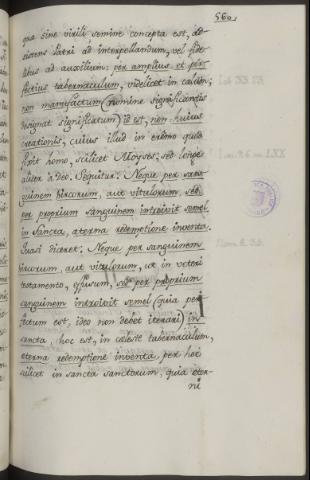 560.
qua sine virili semine concepta est, as-
sistens Patri ad interpellandum, vel fide-
libus ad auxilium: per amplius et per-
fectius tabernaculum, videlicet in cælum;
non manufactum (nomine significantis
designat significatum) id est, non huius
creationis, cuius illud in eremo quod
fecit homo, scilicet Moyses; sed longe
aliter a Deo. Sequitur: Neque per san-
guinem hircorum, aut vitulorum, sed
per proprium sanguinem introivit semel
in Sancta, æterna redemptione inventa.
Quasi diceret: Neque per sanguinem
hircorum, aut vitulorum, ut in veteri
testamento, effusum, sed per proprium
sanguinem introivit semel (quia per-
fectum est, ideo non debet iterari) in
sancta, hoc est, in cæleste tabernaculum,
æterna redemptione inventa per hoc
scilicet in sancta sanctorum, quia æter-
ni